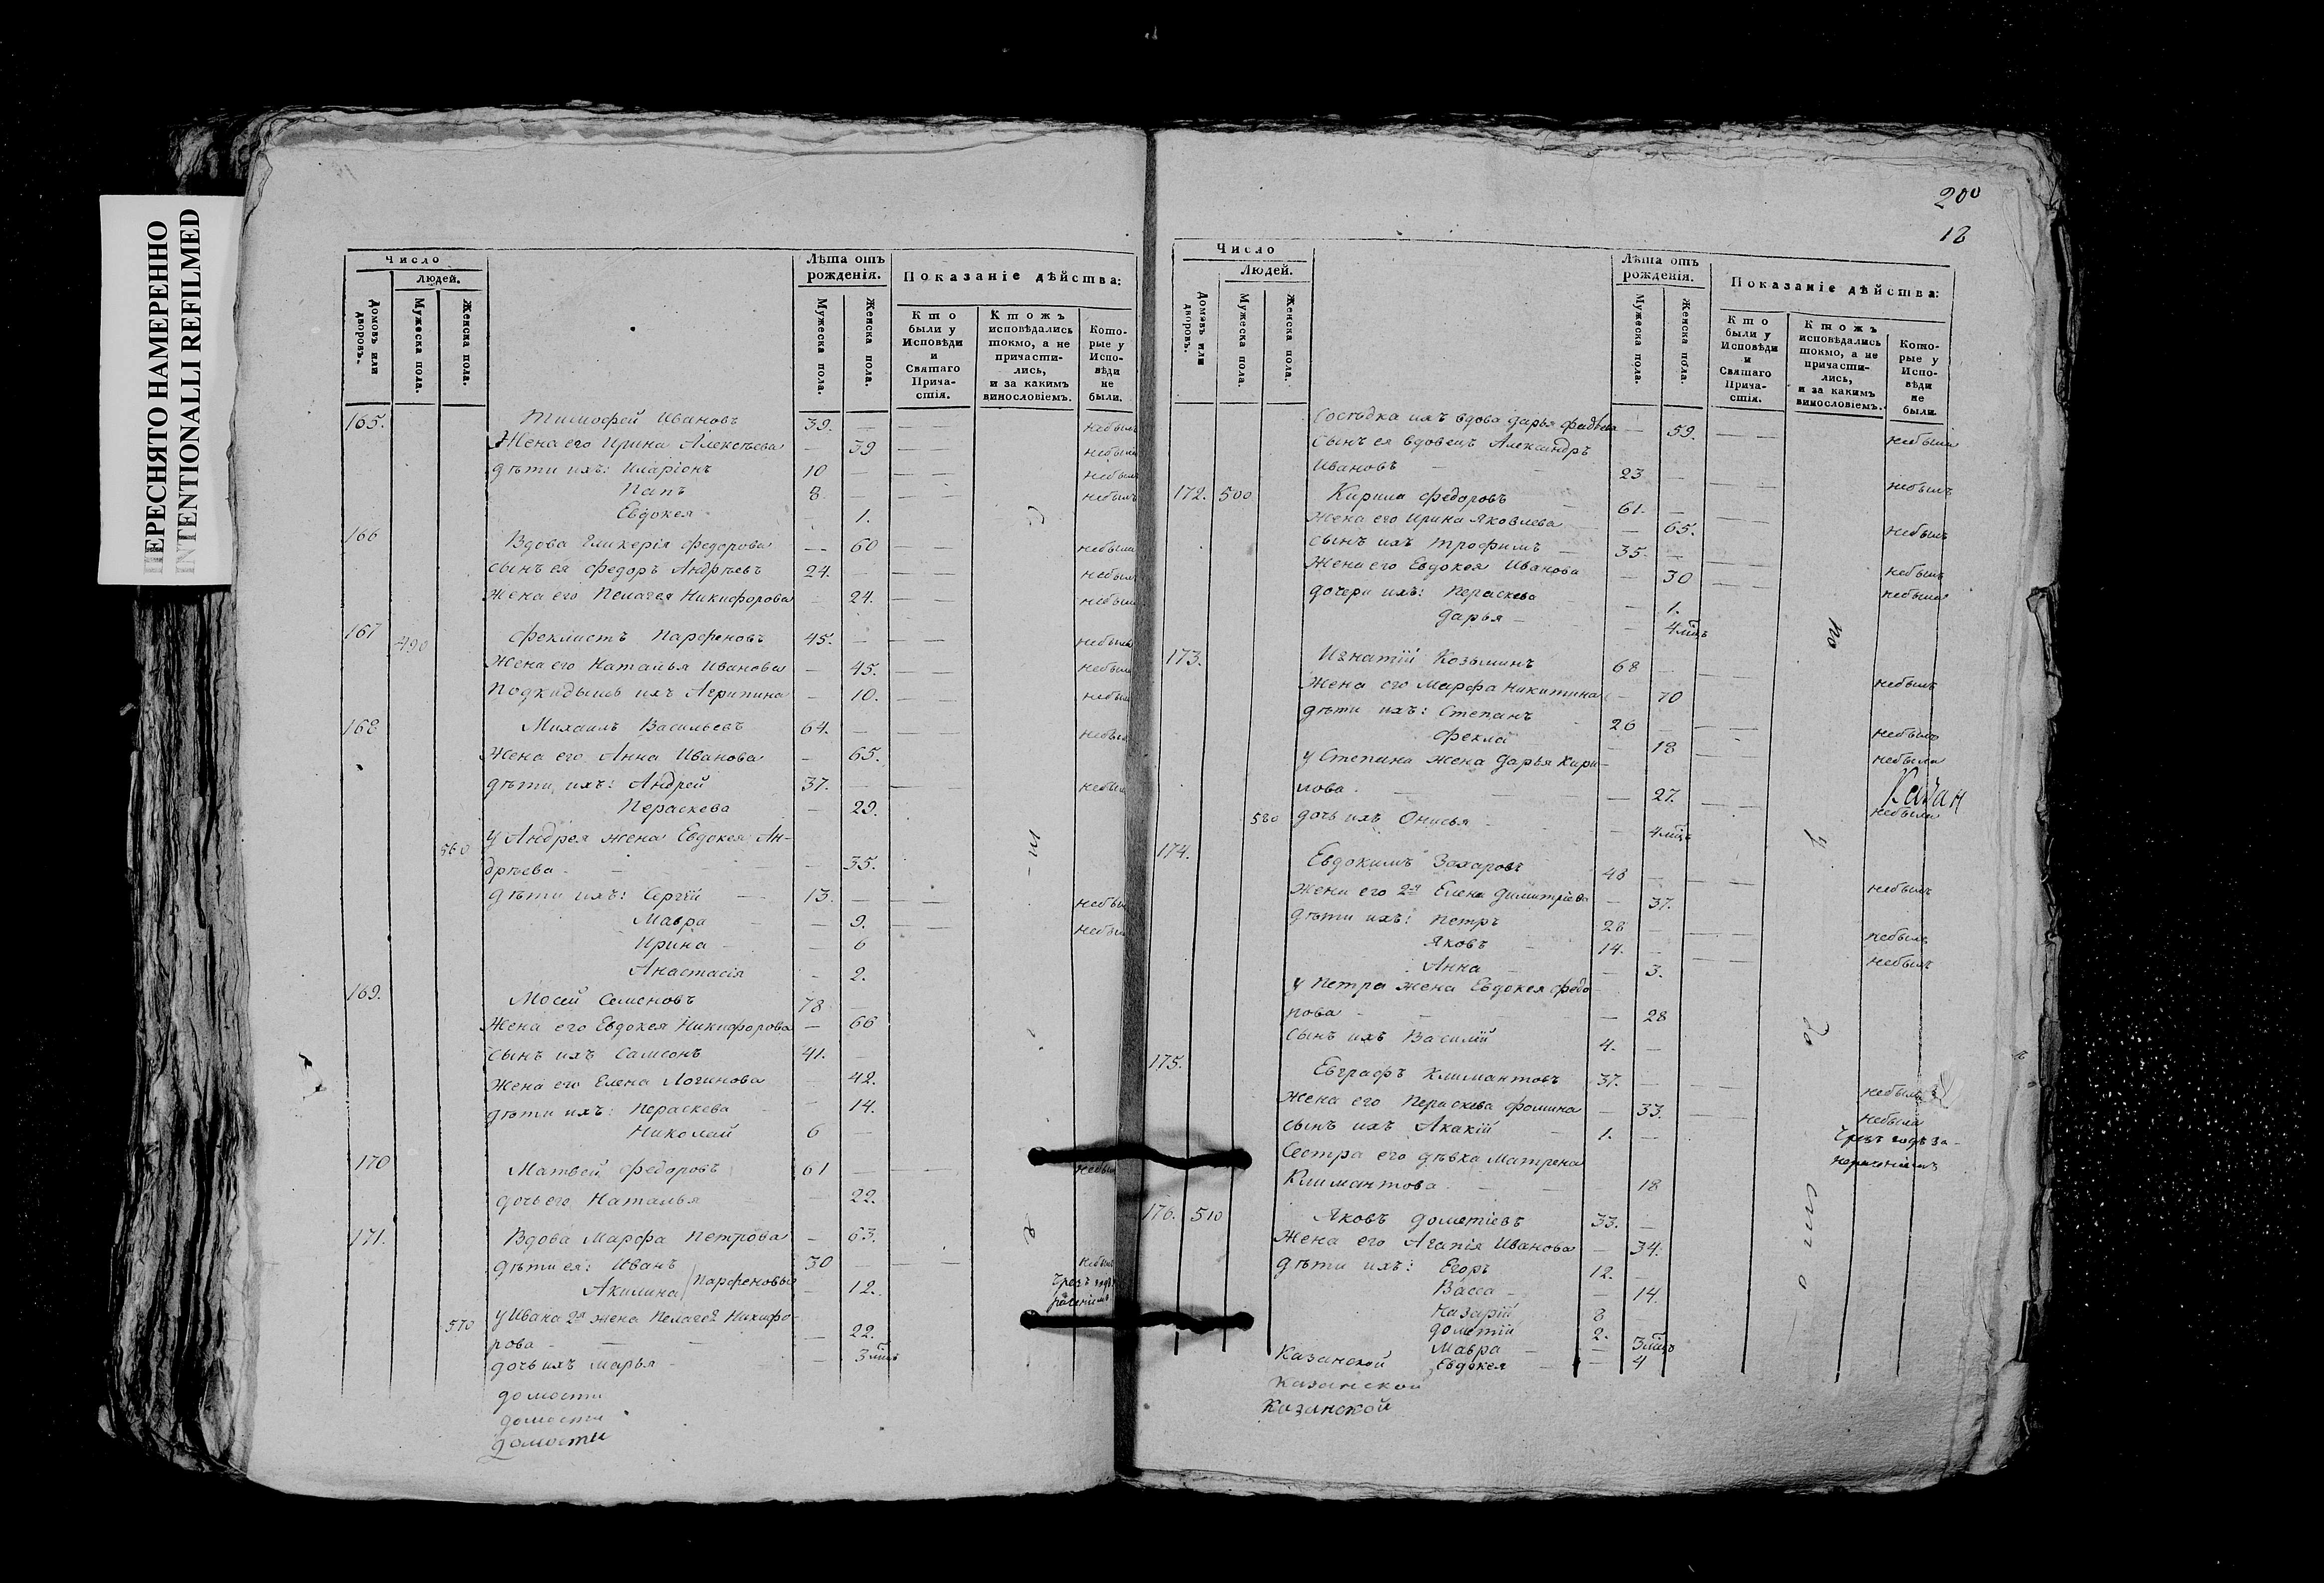 ПЕРЕСНЯТО НАМЕРЕННО
INTENTIONALLI REFILMED
Число
Людей.
Лѣта отъ рожденія.
Показаніе дѣйства:
Домовъ или дворовъ.
Мужеска пола.
Женска пола.
Мужеска пола.
Женска пола.
Кто были у Исповѣди и Святаго Причастія.
Ктожъ исповѣдались токмо, а не причастились, и за какимъ винословіемъ.
Которые у Исповѣди не были.
165. Тимофей Ивановъ 39. — — — небылъ
Жена его Ирина Алексѣева — 39 — — небыла
дѣти ихъ: Иларіонъ 10 — — небылъ
Папъ 8. — — — небылъ
Евдокея — 1.
166 Вдова Гликерія Федорова — 60 — — небыла
сынъ ея Федоръ Андрѣевъ 24. — — — небылъ
Жена его Пелагея Никифорова 24. — — небыла
167 490 Феклистъ Парфеновъ 45. — — — небылъ
Жена его Наталья Иванова — 45. — — небыла
Подкидышъ ихъ Агрипина — 10. — — небыла
168 Михаилъ Васильевъ 64. — — — небылъ
Жена его Анна Иванова — 65.
дѣти ихъ: Андрей 37. — — — небылъ
Пераскева — 29.
560 У Андрея жена Евдокея Ан-
дрѣева — — — 35.
дѣти ихъ: Сергій — 13. — — — небылъ
Мавра — 9. — — небыла
Ирина — 6
Анастасія — 2.
169. Мосей Семеновъ 78 —
Жена его Евдокея Никифорова — 66
сынъ ихъ Самсонъ 41. —
Жена его Елена Логинова — 42.
дѣти ихъ: Пераскева — 14.
Николай 6 —
170 Матвей Федоровъ 61 — — — небылъ
дочь его Наталья — 22.
171. Вдова Марфа Петрова — 63.
дѣти ея: Иванъ 30 — — — небылъ
Акилина Парфеновы — 12. Чрезъ
570 у Ивана 2я жена Пелагея Никифо-
рова — — — 22.
дочь ихъ Марья — — 3 мѣц
домости
домости
домости
200
18
Число
Людей.
Лѣта отъ рожденія.
Показаніе дѣйства:
Домовъ или дворовъ.
Мужеска пола.
Женска пола.
Мужеска пола.
Женска пола.
Кто были у Исповѣди и Святаго Причастія.
Ктожъ исповѣдались токмо, а не причастились, и за какимъ винословіемъ.
Которые у Исповѣди не были.
Сосѣдка ихъ вдова Дарья — 59. — — небыла
Сынъ ея вдовецъ Александръ
Ивановъ — 23 — — — небылъ
172. 500 Кирила Федоровъ 61. — — — небылъ
Жена его Ирина Яковлева — 65.
сынъ ихъ Трофимъ — 35. — — — небылъ
Жена его Евдокея Иванова — 30 — — небыла
дочери ихъ: Пераскева — 1.
Дарья — — 4 мѣц
173. Игнатій Козьминъ 68 — небылъ
Жена его Марфа Никитина — 70
дѣти ихъ: Степанъ 26 — — — небылъ
Фекла — 18 — — небыла
у Степана жена Дарья Кири-
лова — — — 27. — — небыла
Казан
580 дочь ихъ Онисья — — 4 мѣц
174. Евдокимъ Захаровъ 48 — — — небылъ
Жена его 2я Елена Димитріева — 37.
дѣти ихъ: Петръ 28 — — — небылъ
Яковъ — 14. — — — небылъ
Анна — 3.
у Петра жена Евдокея Федо-
рова — — — 28
Сынъ ихъ Василій 4. —
175. Евграфъ Климантовъ 37. — — — небылъ
Жена его Пераскева Фомина — 33. — — небыла
сынъ ихъ Акакій — 1. — Чрезъ
Сестра его дѣвка Матрена
Климантова — — 18
176. 510 Яковъ Дометіевъ 33. —
Жена его Агапія Иванова — 34.
дѣти ихъ: Егоръ 12. —
Васса — — 14.
Назарій 8
Дометій 2.
Мавра — — 3 мѣц
Евдокея — — 4
Казанской
Казанской
Казанской